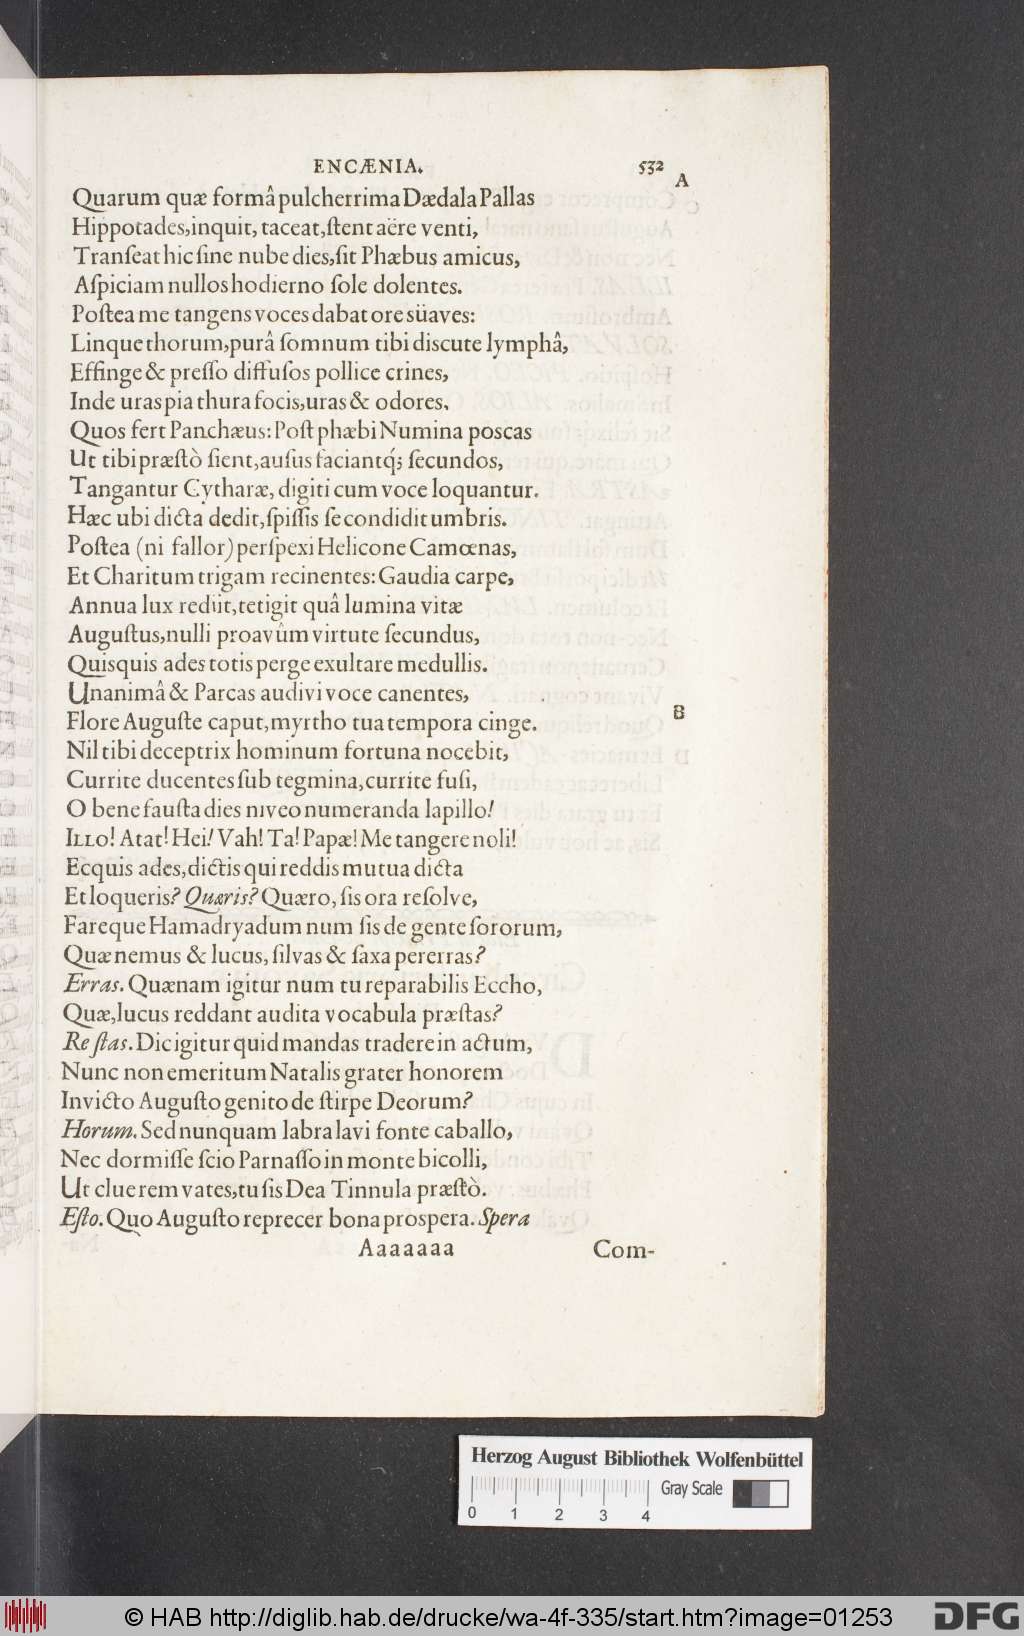 ENCÆNIA. 532
A
Quarum quæ formâ pulcherrima Dædala Pallas
Hippotades, inquit, taceat, ſtent aëre venti,
Tranſeat hic ſine nube dies, ſit Phæbus amicus,
Aſpiciam nullos hodierno ſole dolentes.
Poſtea me tangens voces dabat ore süaves:
Linque thorum, purâ ſomnum tibi discute lymphâ,
Effinge & preſſo diffuſos pollice crines,
Inde uras pia thura focis, uras & odores,
Quos fert Panchæus: Poſt phæbi Numina poscas
Ut tibi præſtò ſient, auſus faciantq́; ſecundos,
Tangantur Cytharæ, digiti cum voce loquantur.
Hæc ubi dicta dedit, ſpiſſis ſe condidit umbris.
Poſtea (ni fallor) perſpexi Helicone Camœnas,
Et Charitum trigam recinentes: Gaudia carpe,
Annua lux rediit, tetigit quâ lumina vitæ
Auguſtus, nulli proavûm virtute ſecundus,
Quisquis ades totis perge exultare medullis.
Unanimâ & Parcas audivi voce canentes,
Flore Auguſte caput, myrtho tua tempora cinge.
B
Nil tibi deceptrix hominum fortuna nocebit,
Currite ducentes ſub tegmina, currite fuſi,
O bene fauſta dies niveo numeranda lapillo!
Illo! Atat! Hei! Vah! Ta! Papæ! Me tangere noli!
Ecquis ades, dictis qui reddis mutua dicta
Et loqueris? Quæris? Quæro, ſis ora reſolve,
Fareque Hamadryadum num ſis de gente ſororum,
Quæ nemus & lucus, ſilvas & ſaxa pererras?
Erras. Quænam igitur num tu reparabilis Eccho,
Quæ, lucus reddant audita vocabula præſtas?
Reſtas. Dic igitur quid mandas tradere in actum,
Nunc non emeritum Natalis grater honorem
Invicto Auguſto genito de ſtirpe Deorum?
Horum. Sed nunquam labra lavi fonte caballo,
Nec dormiſſe ſcio Parnaſſo in monte bicolli,
Ut cluerem vates, tu ſis Dea Tinnula præſtò.
Eſto. Quo Auguſto reprecer bona prospera. Spera
Aaaaaaa Com-
Herzog August Bibliothek Wolfenbüttel
Gray Scale
0 1 2 3 4
© HAB http://diglib.hab.de/drucke/wa-4f-335/start.htm?image=01253
DFG